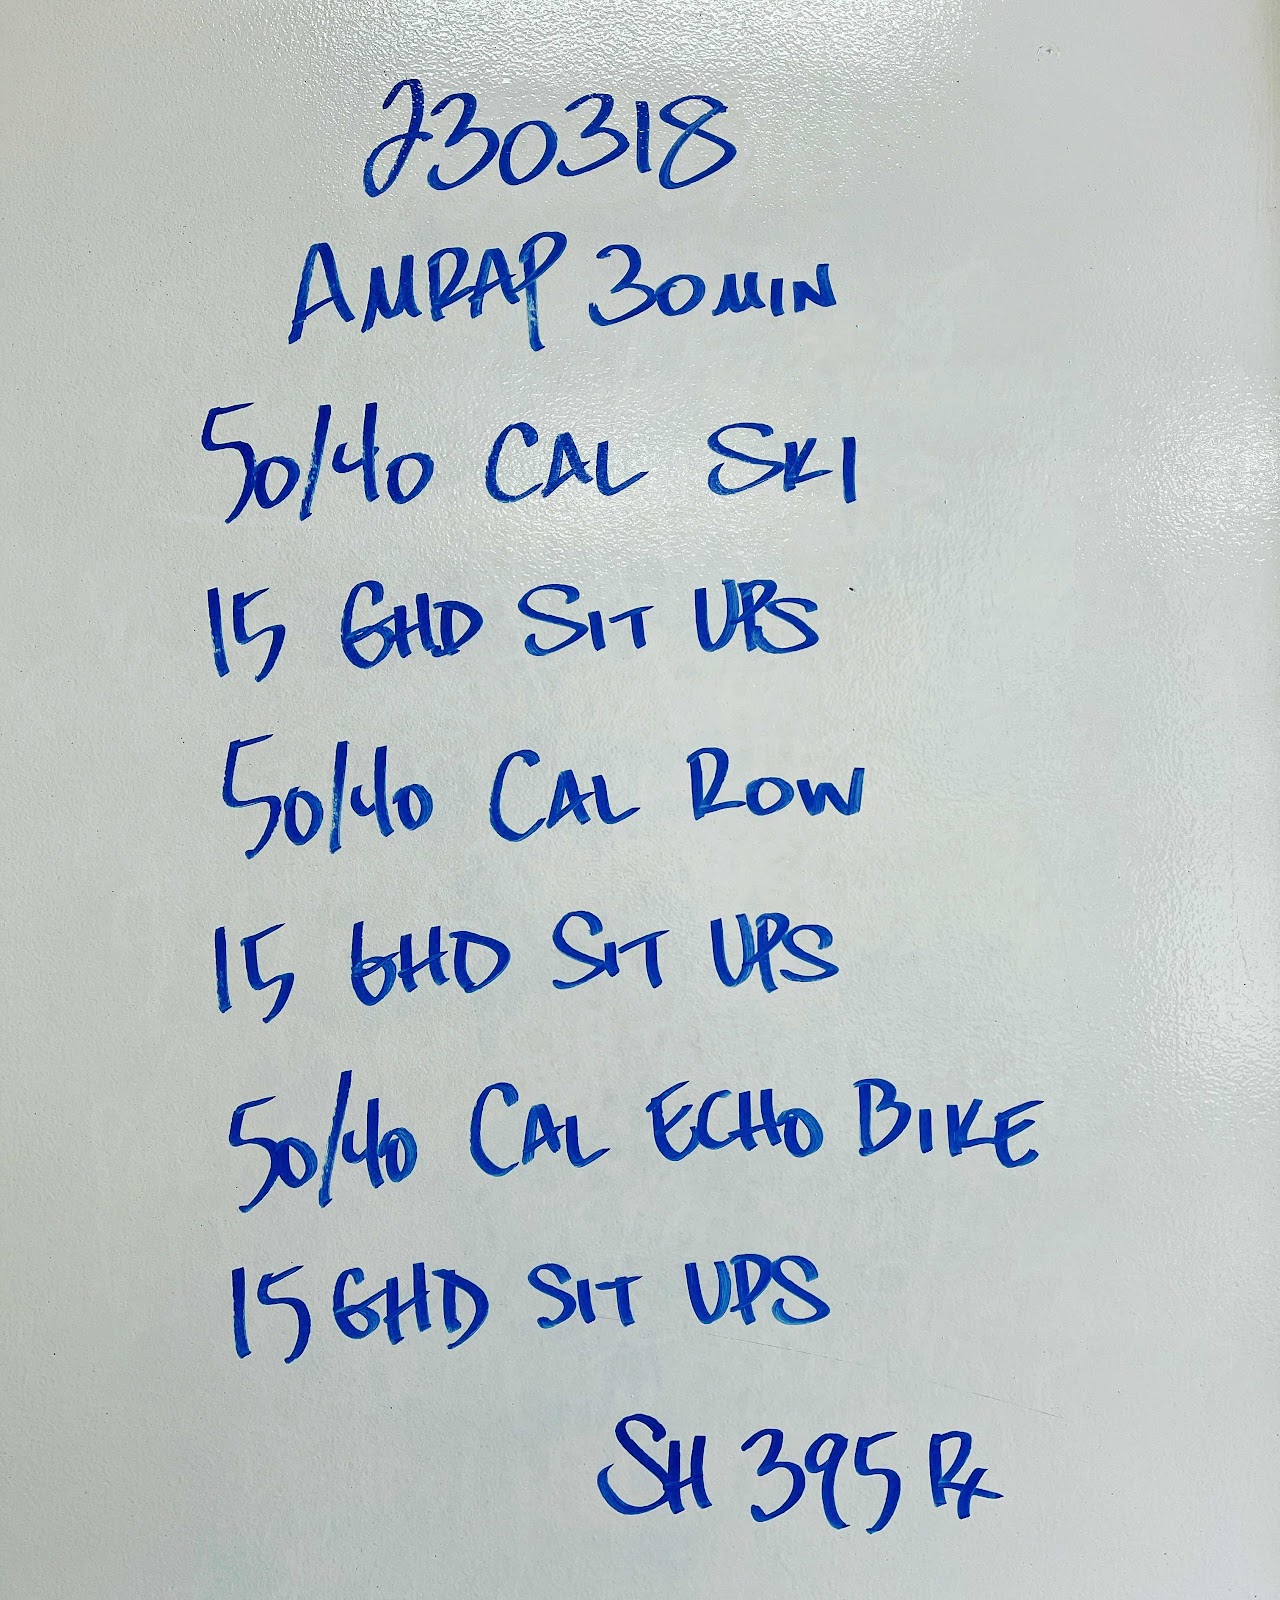 230318
AMRAP 30 MIN
50/40 CAL SKI
15 GHD SIT UPS
50/40 CAL ROW
15 GHD SIT UPS
50/40 CAL ECHO BIKE
15 GHD SIT UPS
SH 395 Rx